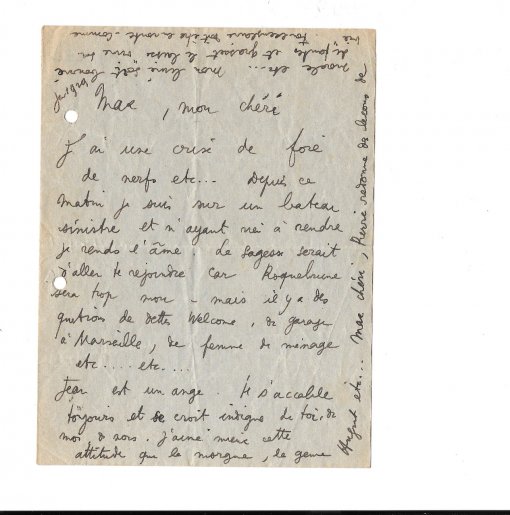 Max, mon chéri
J'ai une crise de foie
de nerfs etc... Depuis ce
matin je suis sur un bateau
sinistre et n'ayant rien à rendre
je rends l'âme. La sagesse serait
d'aller te rejoindre car Roquebrune
sera trop mou - mais il y a des
questions de dettes Welcome, de garage
à Marseille, de femme de ménage
etc..... etc....
Jean est un ange. Il s'accable
toujours et se croit indigne de toi, de
moi & nous. J'aime mieux cette
attitude que la morgue, le genre
Argent etc... Max chéri, Pierre redonne des leçons de
morale etc.... mon livre
et Grasset le laisse